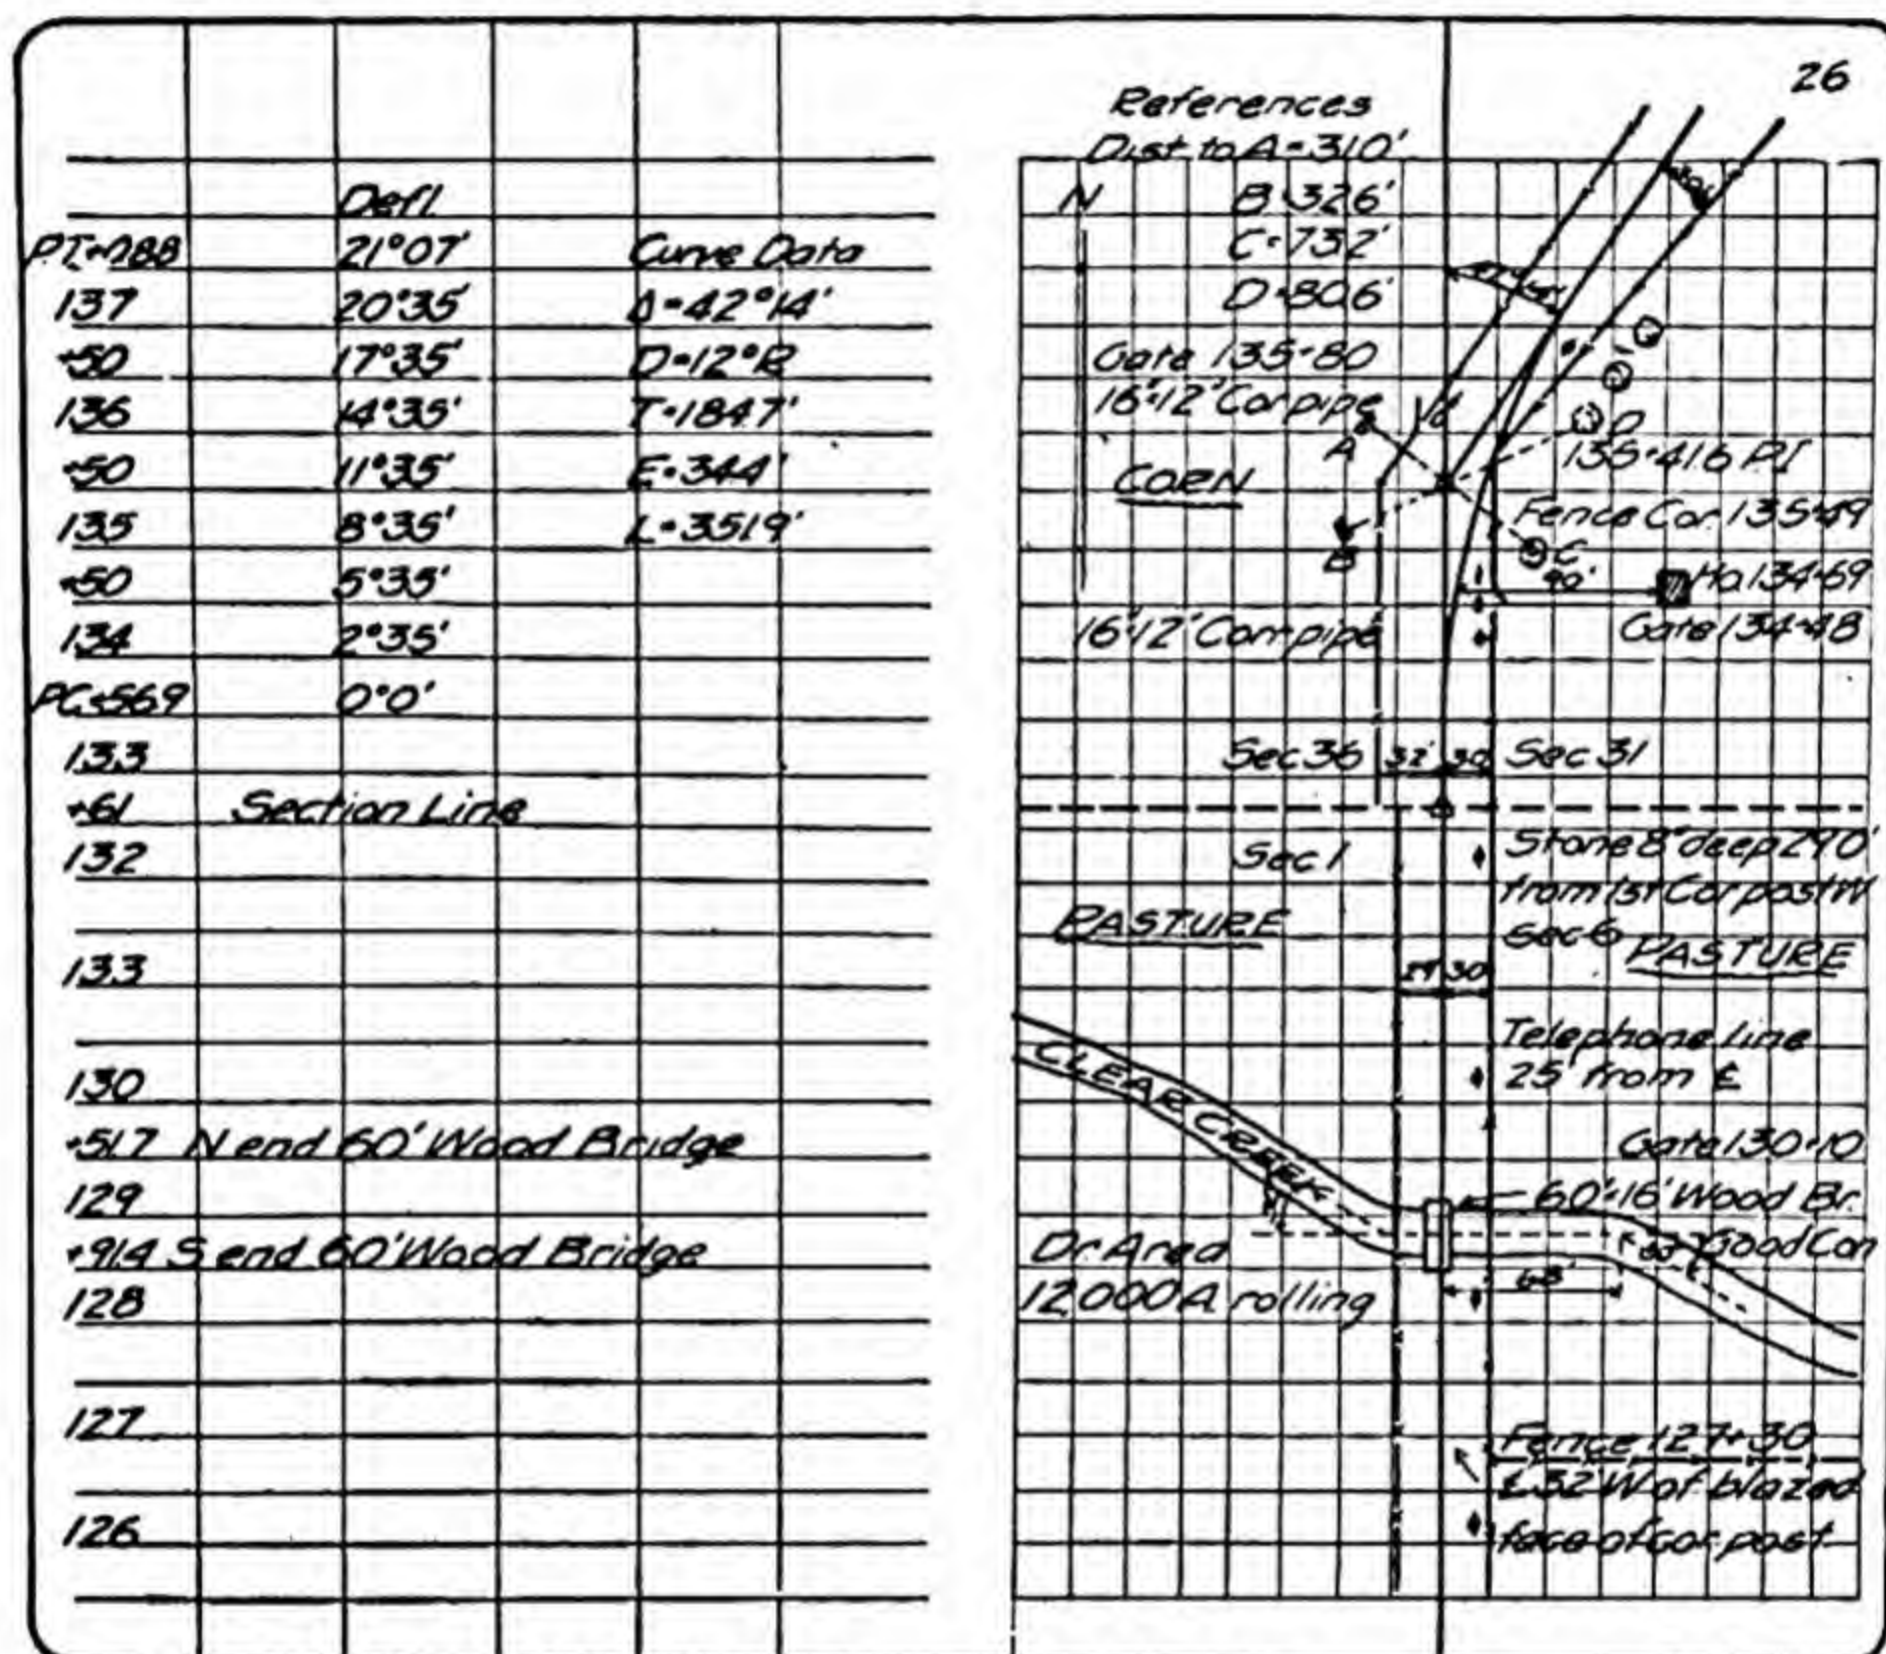 26
Defl.
PT+088 21°07' Curve Data
137 20°35' Δ=42°14'
+50 17°35' D=12°R
136 14°35' T=184.7'
+50 11°35' E=34.4'
135 8°35' L=351.9'
+50 5°35'
134 2°35'
PC+56.9 0°0'
133
+61 Section Line
132
133
130
+51.7 N end 60' Wood Bridge
129
+91.4 S end 60' Wood Bridge
128
127
126
References
Dist. to A=31.0'
B=32.6'
C=73.2'
D=80.6'
N
Gate 135+80
16"x12' Cor pipe
A
D
135+41.6 PI
CORN
Fence Cor. 135+49
B
C
90'
Ho 134+69
16"x12' Corr pipe
Gate 134+48
Sec 36 32' 30' Sec 31
Sec 1
Stone 8" deep 29.0'
from 1st Cor post W
PASTURE
Sec 6 PASTURE
30
Telephone line
25' from ℄
CLEAR CREEK
Gate 130+10
60'x16' Wood Br.
Dr. Area
Good Con
12000 A rolling
68'
Fence 127+30
℄ 32' W of blazed
face of cor post